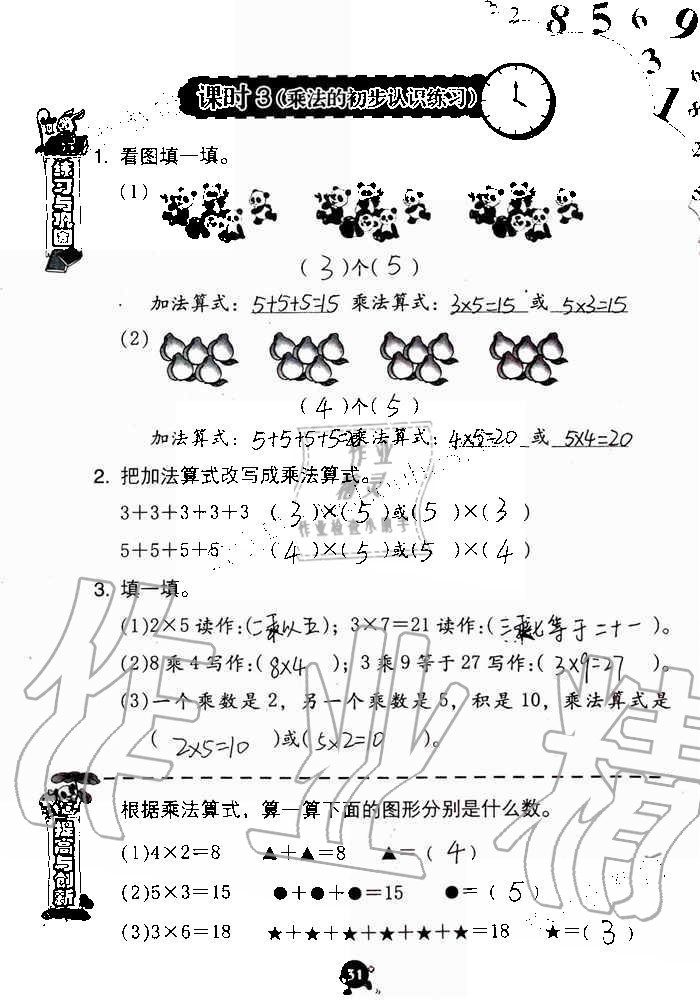 3 2 8 5 6 9
课时 3(乘法的初步认识练习)
3
1
练习与巩固
1. 看图填一填。
(1)
( 3 )个( 5 )
加法算式: 5+5+5=15 乘法算式: 3×5=15 或 5×3=15
(2)
( 4 )个( 5 )
加法算式: 5+5+5+5=20 乘法算式: 4×5=20 或 5×4=20
2. 把加法算式改写成乘法算式。
3+3+3+3+3 ( 3 )×( 5 )或( 5 )×( 3 )
5+5+5+5 ( 4 )×( 5 )或( 5 )×( 4 )
3. 填一填。
(1)2×5 读作:(二乘以五); 3×7=21 读作:(三乘七等于二十一)。
(2)8 乘 4 写作:( 8×4 ); 3 乘 9 等于 27 写作:( 3×9=27 )。
(3)一个乘数是 2, 另一个乘数是 5, 积是 10, 乘法算式是
( 2×5=10 )或( 5×2=10 )。
提高与创新
根据乘法算式, 算一算下面的图形分别是什么数。
(1)4×2=8 ▲+▲=8 ▲=( 4 )
(2)5×3=15 ●+●+●=15 ●=( 5 )
(3)3×6=18 ★+★+★+★+★+★=18 ★=( 3 )
31
作业精灵
作业检查小助手
作业精